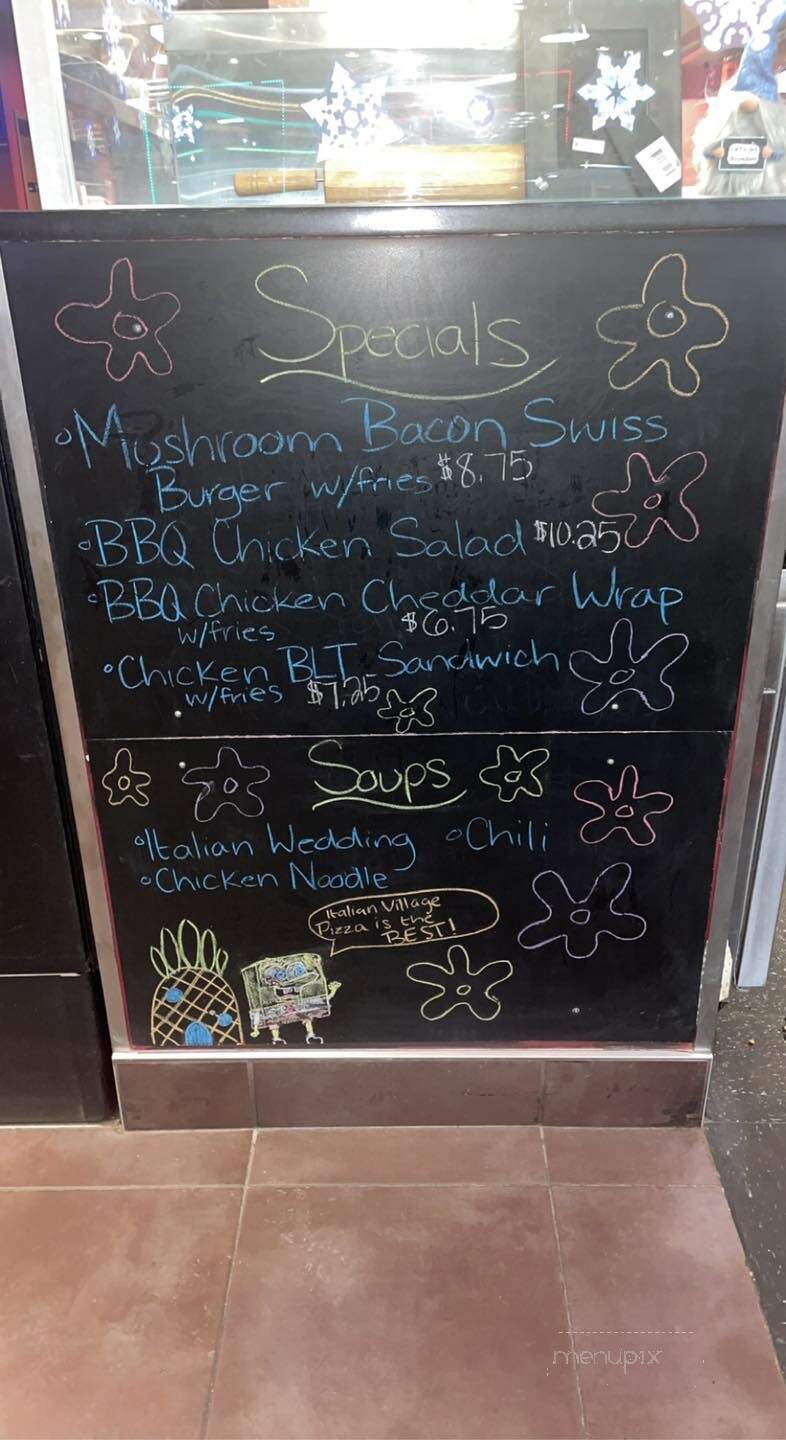 Specials
Mushroom Bacon Swiss
Burger w/fries $8.75
BBQ Chicken Salad $10.25
BBQ Chicken Cheddar Wrap
w/fries $6.75
Chicken BLT Sandwich
w/fries $7.25
Soups
Italian Wedding Chili
Chicken Noodle
Italian Village
Pizza is the
BEST!
menupix